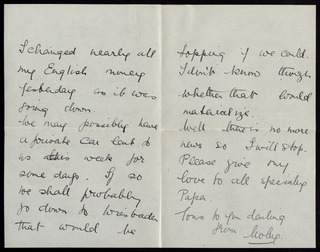 I changed nearly all
my English money
yesterday as it was
going down.
We may possibly have
a private car lent to
us this week for
some days. If so
we shall probably
go down to Wiesbaden
that would be
topping if we could.
I don't know though
whether that would
materialize.
Well there is no more
news so I will stop.
Please give my
love to all specially
Papa
Tons to you darling
from Molly